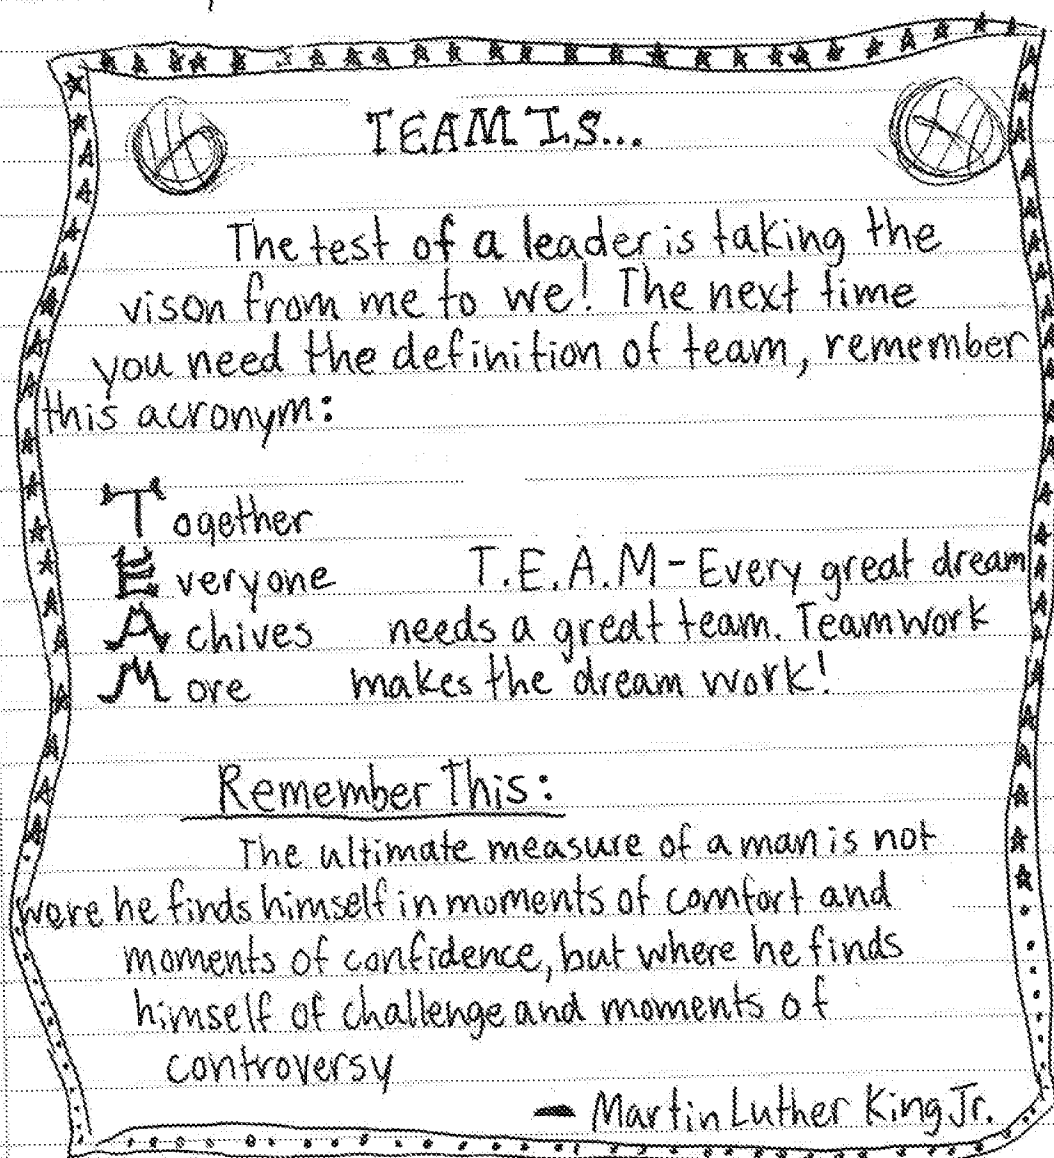 TEAM IS...
The test of a leader is taking the
vison from me to we! The next time
you need the definition of team, remember
this acronym:
Together
Everyone
Achives
More
T.E.A.M - Every great dream
needs a great team. Teamwork
makes the dream work!
Remember This:
The ultimate measure of a man is not
were he finds himself in moments of comfort and
moments of confidence, but where he finds
himself of challenge and moments of
controversy
- Martin Luther King Jr.